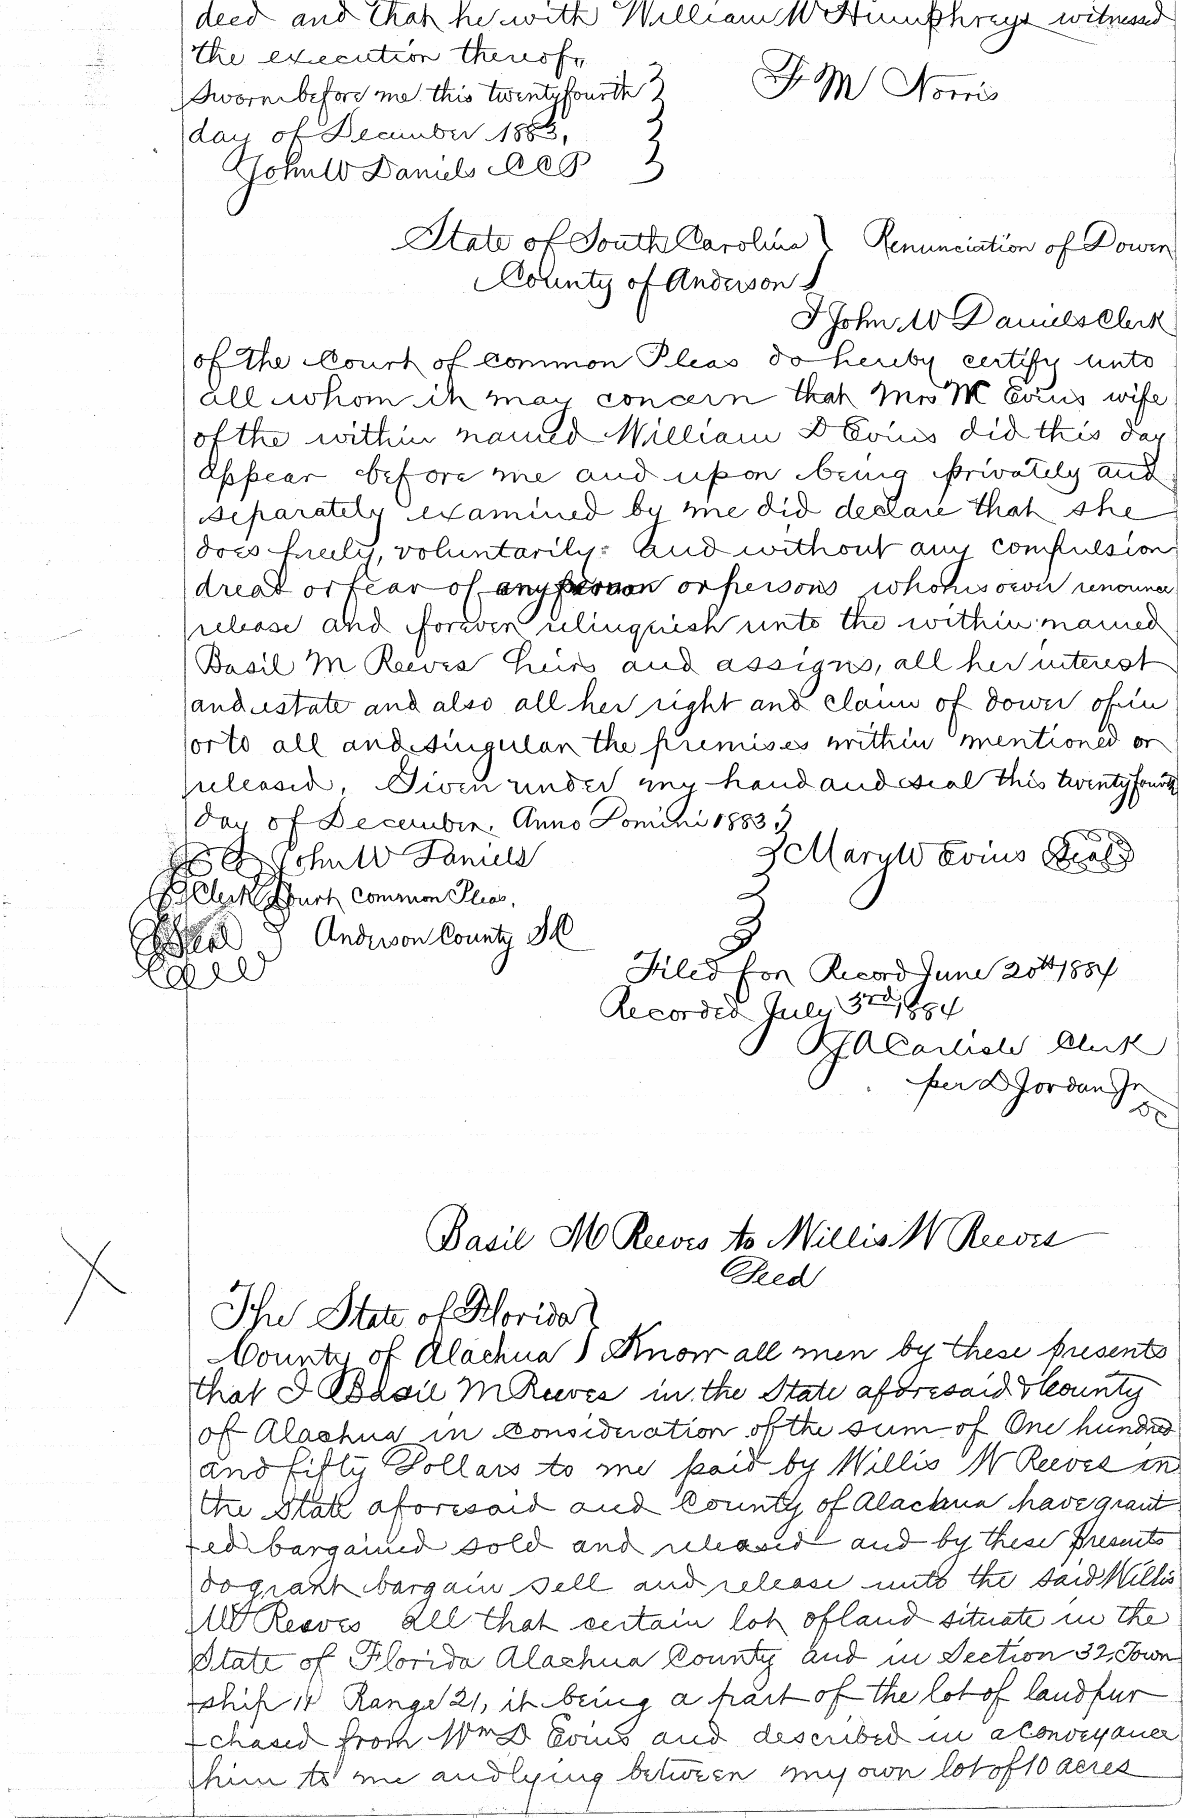 deed and that he with William W Humphreys witnessed
the execution thereof,,
Sworn before me this twentyfourth
day of December 1883,
John W Daniels CCP
F M Norris
State of South Carolina } Renunciation of Dower
County of Anderson }
I John W Daniels Clerk
of the Court of common Pleas do hereby certify unto
all whom it may concern that Mrs M Evins wife
of the within named William D Evins did this day
appear before me and upon being privately and
separately examined by me did declare that she
does freely, voluntarily: and without any compulsion
dread or fear of any person or persons whomsoever renounce
release and forever relinquish unto the within named
Basil M Reeves heirs and assigns, all her interest
and estate and also all her right and claim of dower of in
or to all and singular the premises within mentioned or
released. Given under my hand and seal this twentyfourth
day of December, Anno Domini 1883,
John W Daniels
Mary W Evins Seal
Clerk Court Common Pleas,
Seal
Anderson County S C
Filed for Record June 20th 1884
Recorded July 3rd, 1884
J A Carlisle Clerk
per D Jordan Jr
DC
Basil M Reeves to Willis W Reeves
Deed
The State of Florida }
County of Alachua } Know all men by these presents
that I Basil M Reeves in the State aforesaid & County
of Alachua in consideration of the sum of One hundred
and fifty Dollars to me paid by Willis W Reeves in
the State aforesaid and County of Alachua have grant
-ed bargained sold and released and by these presents
do grant bargain sell and release unto the said Willis
W Reeves all that certain lot of land situate in the
State of Florida Alachua County and in Section 32, Town
-ship 11 Range 21, it being a part of the lot of land pur
-chased from Wm D Evins and described in a conveyance
him to me and lying between my own lot of 10 acres